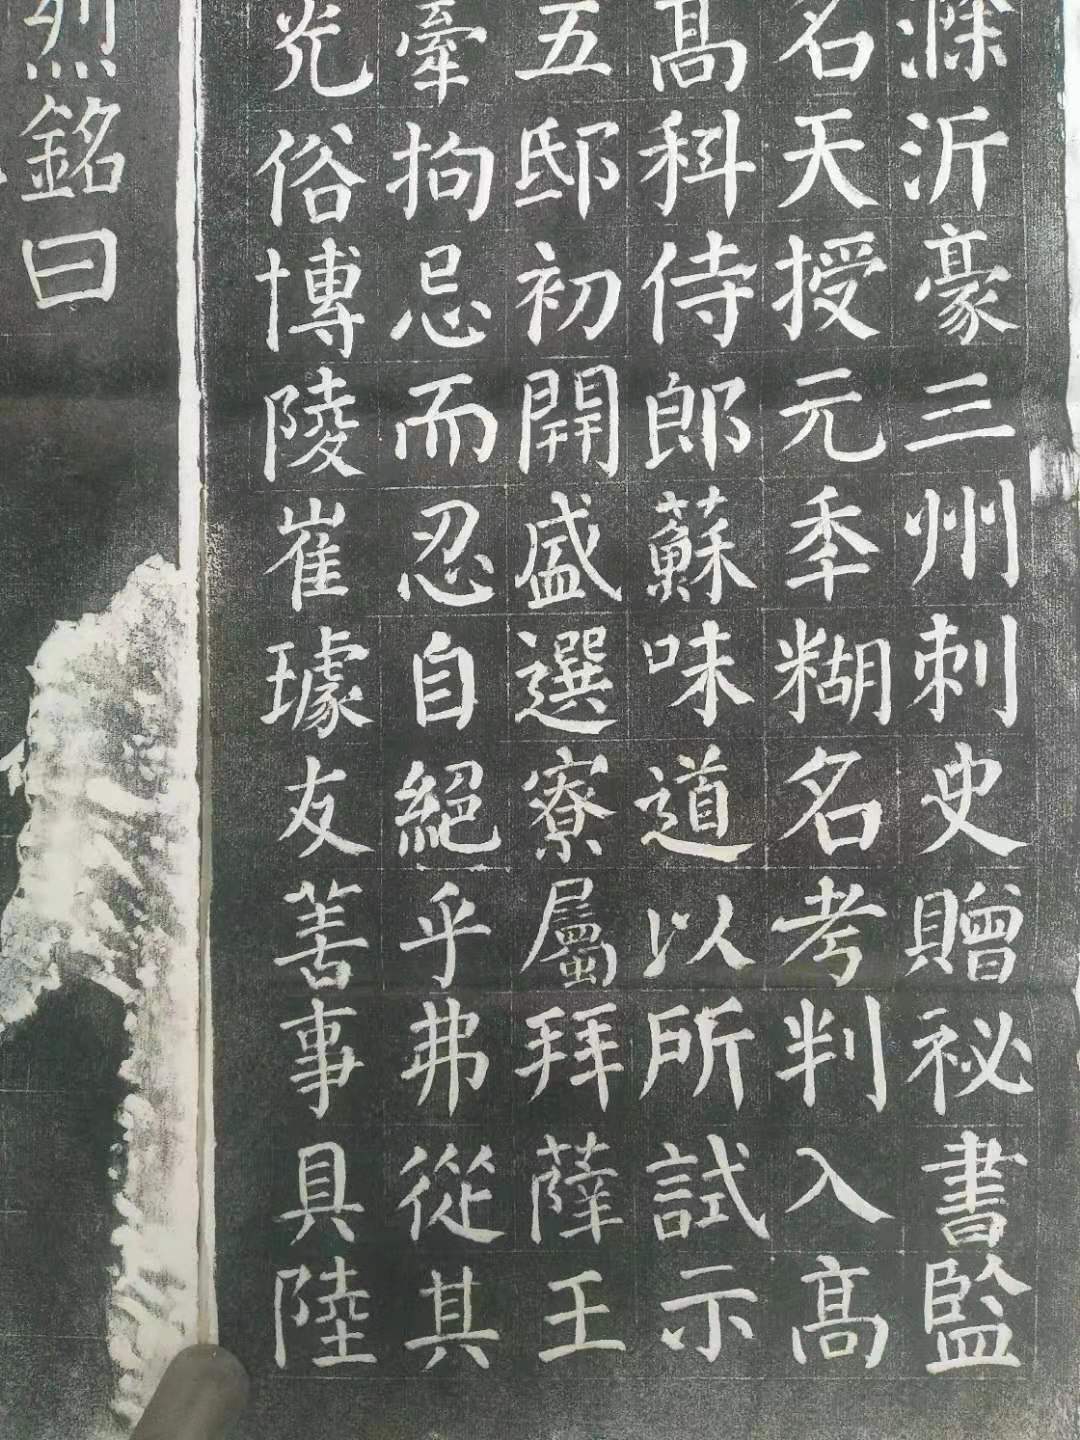 滁沂豪三州刺史贈祕書監
名天授元年糊名考判入高
髙科侍郎蘇味道以所試示
五邸初開盛選寮屬拜薛王
牽拘忌而忍自絕乎弗從其
光俗博陵崔璩友善事具陸
烈銘曰